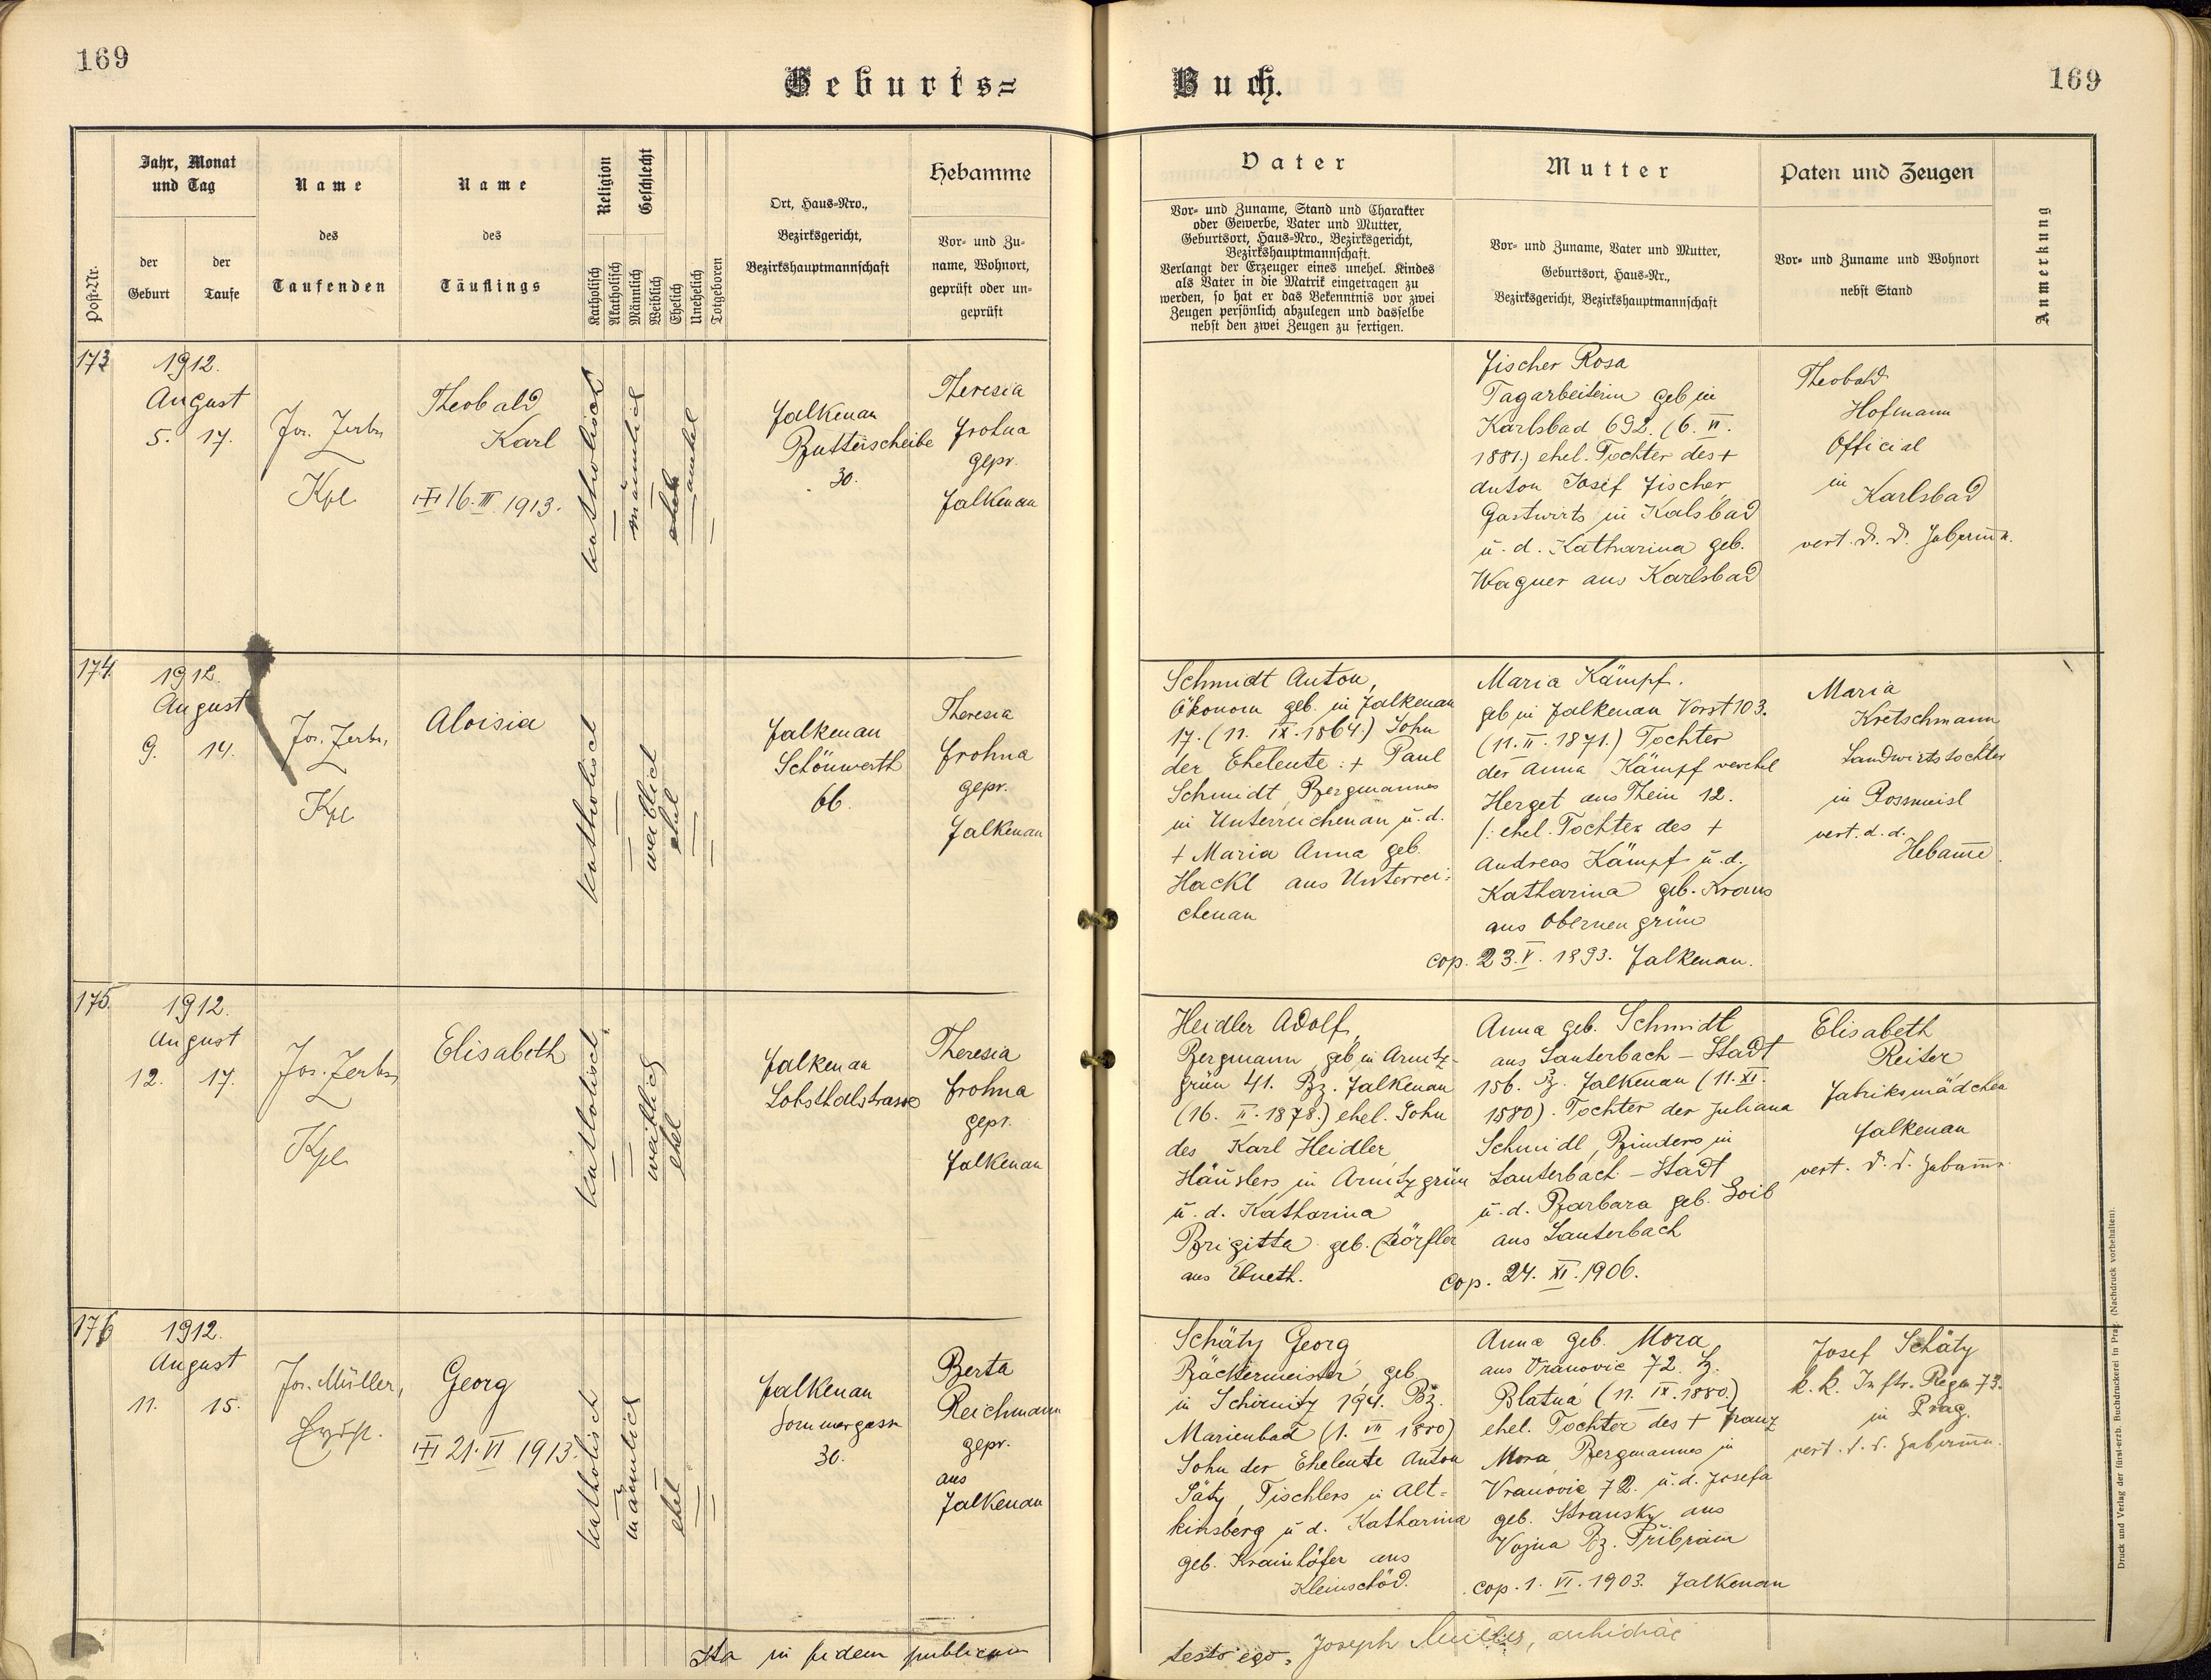 169
Geburts=
Buch.
169
Post-Nr.
Jahr, Monat
und Tag
der
Geburt
der
Taufe
Name
des
Taufenden
Name
des
Täuflings
Religion
Katholisch
Akatholisch
Geschlecht
Männlich
Weiblich
Ehelich
Unehelich
Totgeboren
Ort, Haus-Nro.,
Bezirksgericht,
Bezirkshauptmannschaft
Hebamme
Vor- und Zu-
name, Wohnort,
geprüft oder un-
geprüft
Vater
Vor- und Zuname, Stand und Charakter
oder Gewerbe, Vater und Mutter,
Geburtsort, Haus-Nro., Bezirksgericht,
Bezirkshauptmannschaft.
Verlangt der Erzeuger eines unehel. Kindes
als Vater in die Matrik eingetragen zu
werden, so hat er das Bekenntnis vor zwei
Zeugen persönlich abzulegen und dasselbe
nebst den zwei Zeugen zu fertigen.
Mutter
Vor- und Zuname, Vater und Mutter,
Geburtsort, Haus-Nr.,
Bezirksgericht, Bezirkshauptmannschaft
Paten und Zeugen
Vor- und Zuname und Wohnort
nebst Stand
Anmerkung
173
1912.
August
5. 17.
Jos. Zerbs
Kpl
Theobald
Karl
16. III. 1913.
katholisch
männlich
unehel
Falkenau
Butterscheibe
30.
Theresia
Frohna
gepr.
Falkenau
Fischer Rosa
Tagarbeiterin geb in
Karlsbad 692. (6. VI.
1881.) ehel. Tochter des +
Anton Josef Fischer,
Gastwirts in Kalsbad
u. d. Katharina geb.
Wagner aus Karlsbad
Theobald
Hofmann
Official
in
Karlsbad
vert. d. d.
174.
1912.
August
9. 14.
Jos. Zerbs,
Kpl
Aloisia
katholisch
weiblich
ehel
Falkenau
Schönwerth
66.
Theresia
Frohna
gepr.
Falkenau
Schmidt Anton,
Ökonom geb. in Falkenau
17. (11. IX. 1864.) Sohn
der Eheleute: + Paul
Schmidt, Bergmannes
in Unterreichenau u. d.
+ Maria Anna geb.
Hackl aus Unterrei-
chenau
Maria Kämpf.
geb in Falkenau Vorst 103.
(11. II. 1871.) Tochter
der Anna Kämpf verehel
Herget aus Thein 12.
/: ehel. Tochter des +
Andreas Kämpf u. d.
Katharina geb. Kraus
aus Oberneugrün
cop. 23. V. 1893. Falkenau.
Maria
Kretschmann
Landwirtstochter
in Rossmeisl
vert. d. d.
Hebame.
175.
1912.
August
12. 17.
Jos. Zerbs
Kpl
Elisabeth
katholisch
weiblich
ehel
Falkenau
Lobsthalstrasse
Theresia
Frohna
gepr.
Falkenau
Heidler Adolf,
Bergmann geb in Arnitz-
grün 41. Bz. Falkenau
(16. II. 1878.) ehel. Sohn
des Karl Heidler
Häuslers in Arnitzgrün
u. d. Katharina
Brigitta geb. Dörfler
aus Ebneth.
Anna geb. Schmidt
aus Lauterbach – Stadt
156. Bz. Falkenau (11. XI.
1880). Tochter der Juliana
Schmidl, Binders in
Lauterbach – Stadt
u. d. Barbara geb. Loib
aus Lauterbach
cop. 24. XI. 1906.
Elisabeth
Reiter
Fabriksmädchen
Falkenau
vert. d. d.
176
1912.
August
11. 15.
Jos. Müller,
Georg
21. VI 1913.
katholisch
männlich
ehel
Falkenau
Sommergasse
30.
Berta
Reichmann
gepr.
aus
Falkenau
Schäty Georg
Bäckermeister, geb.
in Schirnitz 194. Bz.
Marienbad (1. VII 1880)
Sohn der Eheleute Anton
Säty, Tischlers in Alt-
kinsberg u d. Katharina
geb. Krainhöfer aus
Kleinschöd.
Anna geb. Mora
aus Vranovic 72. Bz.
Blatná (11. IX. 1880.)
ehel. Tochter des + Franz
Mora, Bergmannes in
Vranovic 72. u. d. Josefa
geb. Stransky aus
Vojna Bz. Přibram
cop. 1. VI. 1903. Falkenau
Josef Schäty
k. k. Inftr. Regm 73.
in Prag.
vert. d. d.
Ita in fidem publicam
testo ego: Joseph Müller, archidiac
Druck und Verlag der fürst-erzb. Buchdruckerei in Prag. (Nachdruck vorbehalten).